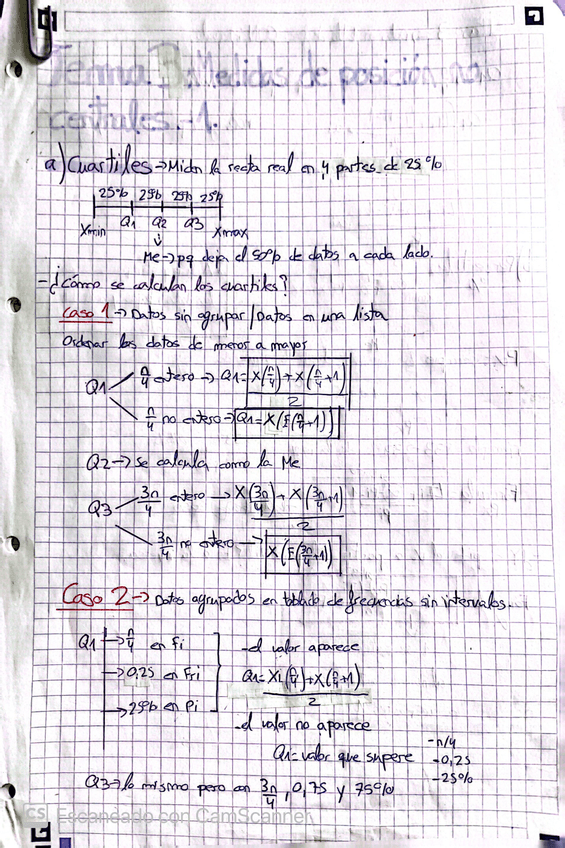 Tema 3: Medidas de posición no
centrales.-1.
a) Cuartiles → Miden la recta real en 4 partes de 25%
25% 25% 25% 25%
Xmin Q1 Q2 Q3 Xmax
↓
Me → pq deja el 50% de datos a cada lado.
- ¿Cómo se calculan los cuartiles?
Caso 1 → Datos sin agrupar / Datos en una lista
Ordenar los datos de menor a mayor
Q1
n/4 entero → Q1 = (X(n/4) + X(n/4+1))/2
n/4 no entero → Q1 = X(E(n/4+1))
Q2 → se calcula como la Me
Q3
3n/4 entero → (X(3n/4) + X(3n/4+1))/2
3n/4 no entero → X(E(3n/4+1))
Caso 2 → Datos agrupados en tablado de frecuencias sin intervalos.
Q1 → n/4 en Fi
→ 0,25 en Fri
→ 25% en Pi
- el valor aparece
Q1 = (Xi(n/4) + X(n/4+1))/2
- el valor no aparece
Q1 = valor que supere
- n/4
- 0,25
- 25%
Q3 → lo mismo pero con 3n/4, 0,75 y 75%
CS Escaneado con CamScanner